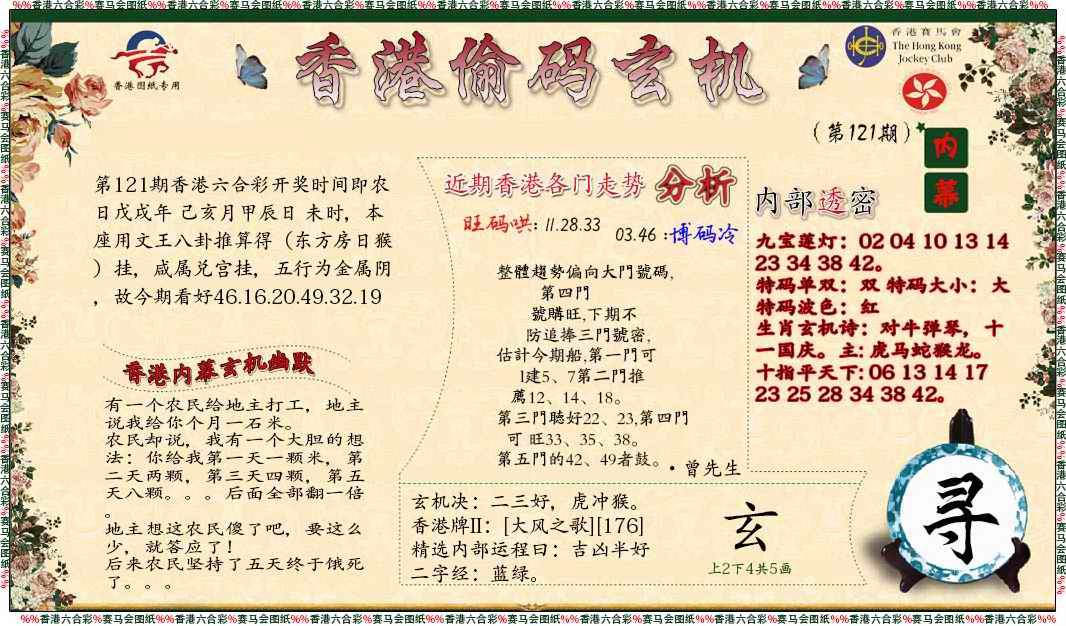 %%香港六合彩%赛马会图纸%%香港六合彩%赛马会图纸%%香港六合彩%赛马会图纸%%香港六合彩%赛马会图纸%%香港六合彩%赛马会图纸%%香港六合彩%赛马会图纸%%香港六合彩%%
香港图纸专用
香港偷码玄机
香港賽馬會
The Hong Kong
Jockey Club
(第121期)
内
幕
第121期香港六合彩开奖时间即农
日戊戌年 己亥月甲辰日 未时，本
座用文王八卦推算得（东方房日猴
）挂，咸属兑宫挂，五行为金属阴
，故今期看好46.16.20.49.32.19
香港内幕玄机幽默
有一个农民给地主打工，地主
说我给你个月一石米。
农民却说，我有一个大胆的想
法：你给我第一天一颗米，第
二天两颗，第三天四颗，第五
天八颗。。。后面全部翻一倍
。
地主想这农民傻了吧，要这么
少，就答应了！
后来农民坚持了五天终于饿死
了。。。
近期香港各门走势 分析
旺码哄: 11.28.33
03.46 :博码冷
整體趨勢偏向大門號碼,
第四門
號購旺,下期不
防追捧三門號密,
估計今期船,第一門可
l建5、7第二門推
薦12、14、18。
第三門聽好22、23,第四門
可 旺33、35、38。
第五門的42、49者鼓。
·曾先生
内部透密
九宝莲灯：02 04 10 13 14
23 34 38 42。
特码单双：双 特码大小：大
特码波色：红
生肖玄机诗：对牛弹琴，十
一国庆。主: 虎马蛇猴龙。
十指平天下: 06 13 14 17
23 25 28 34 38 42。
玄机决：二三好，虎冲猴。
香港牌II：[大风之歌][176]
精选内部运程曰：吉凶半好
二字经：蓝绿。
玄
上2下4共5画
寻
%%香港六合彩%赛马会图纸%%香港六合彩%赛马会图纸%%香港六合彩%赛马会图纸%%香港六合彩%赛马会图纸%%香港六合彩%赛马会图纸%%香港六合彩%赛马会图纸%%香港六合彩%%